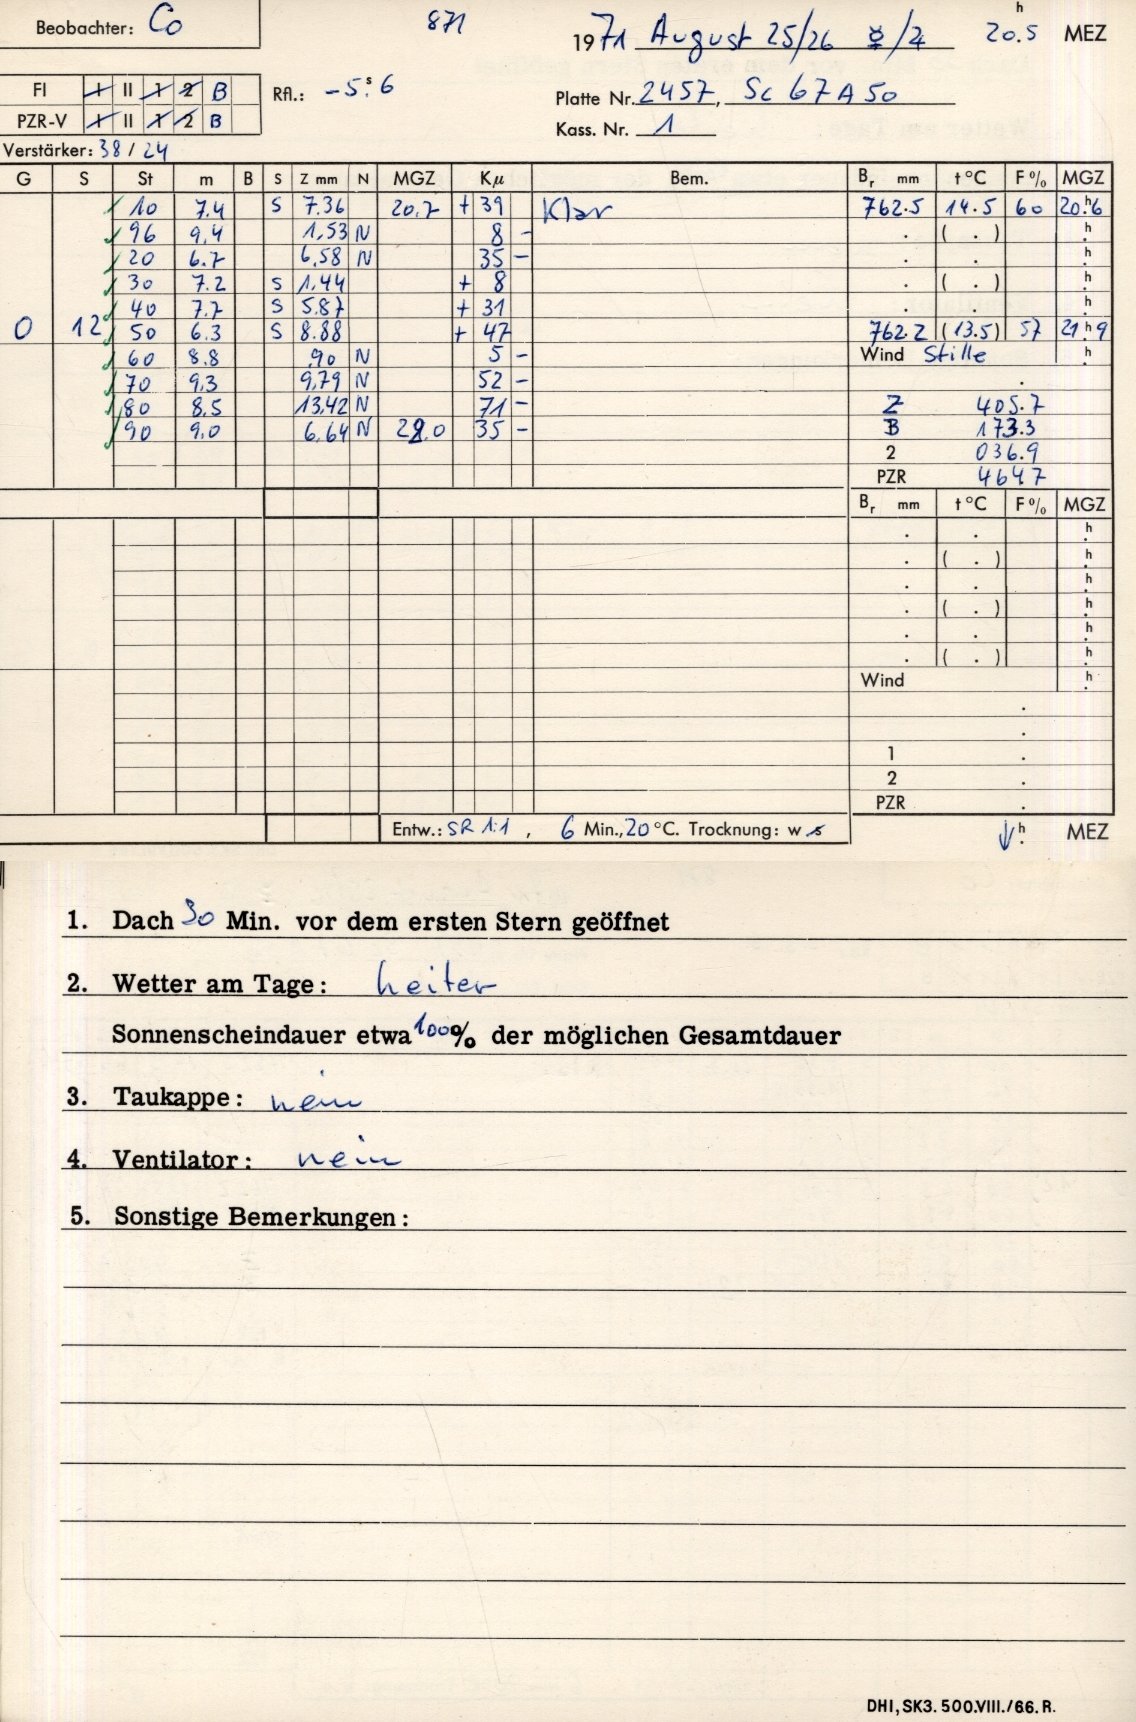 Beobachter: Co 871 1971 August 25/26 ☿/♃ 20.5 h MEZ
FI I II 1 2 B Rfl.: -5.s6 Platte Nr. 2457, Sc 67 A 50
PZR-V I II 1 2 B Kass. Nr. 1
Verstärker: 38 / 24
G S St m B S Z mm N MGZ Kμ Bem. Br mm t °C F % MGZ
10 7.4 S 7.36 20.7 + 39 Klar 762.5 14.5 60 20.h6
96 9.4 1,53 N 8 - . ( . ) h
20 6.7 6,58 N 35 - . . h
30 7.2 S 1.44 + 8 . ( . ) h
40 7.7 S 5.87 + 31 . . h
0 12 50 6.3 S 8.88 + 47 762.2 (13.5) 57 21.h9
60 8.8 .90 N 5 - Wind Stille h
70 9.3 9,79 N 52 - .
80 8.5 13,42 N 71 - 405.7
90 9.0 6,64 N 35 - B 173.3
2 036.9
PZR 4647
Br mm t °C F % MGZ
. . h
. ( . ) h
. . h
. ( . ) h
. . h
. ( . ) h
Wind h
.
.
1 .
2 .
PZR .
Entw.: SR 1:1 , 6 Min., 20 °C. Trocknung: w s h MEZ
1. Dach 30 Min. vor dem ersten Stern geöffnet
2. Wetter am Tage: heiter
Sonnenscheindauer etwa 100% der möglichen Gesamtdauer
3. Taukappe: nein
4. Ventilator: nein
5. Sonstige Bemerkungen:
DHI, SK3. 500.VIII./66. R.